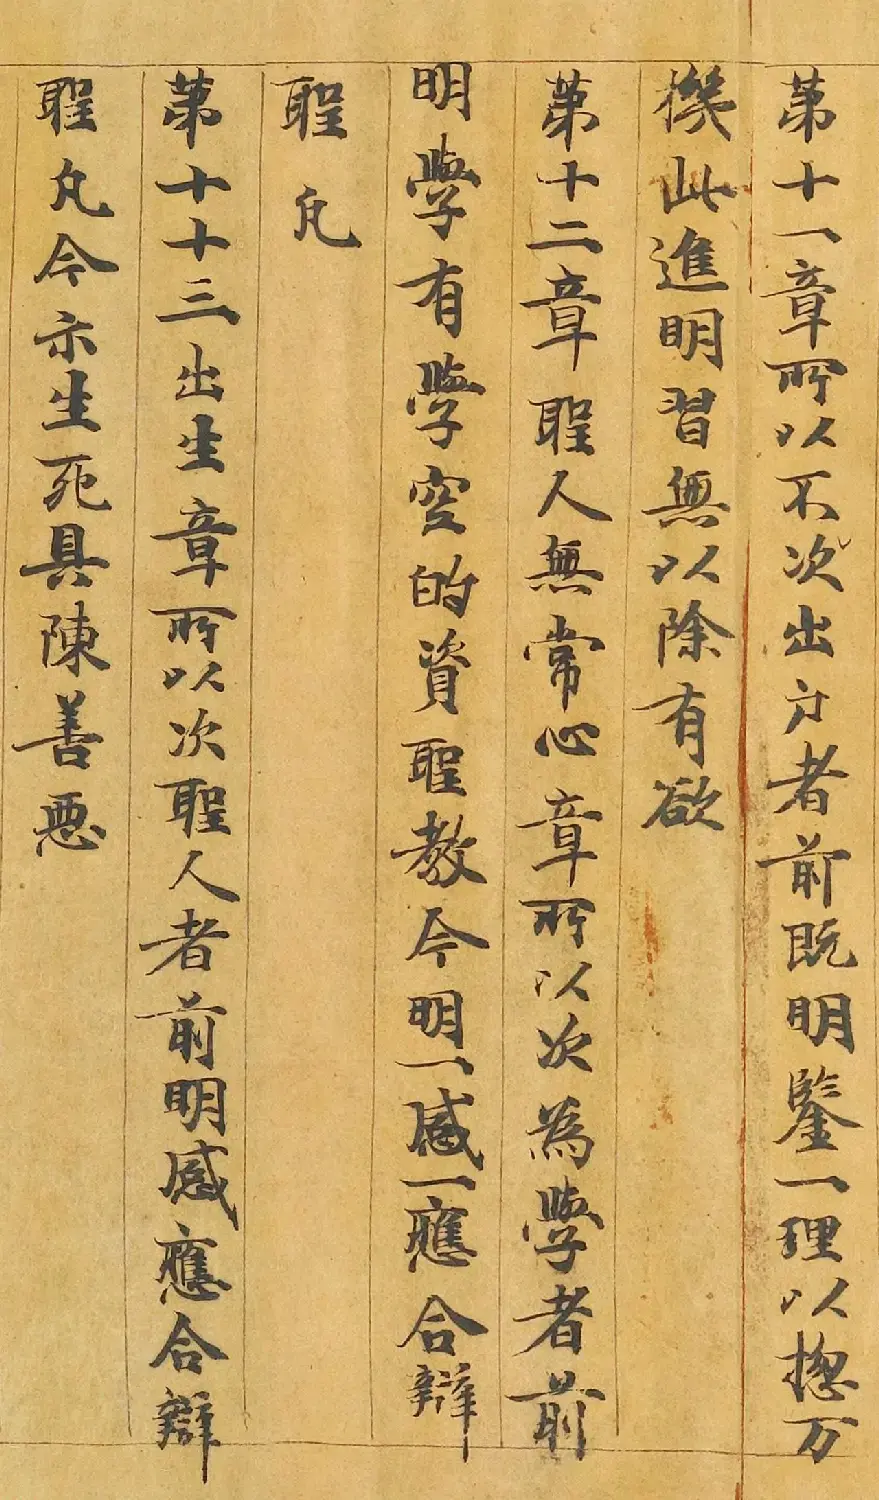 第十一章所以不次出户者前既明鑒一理以揔万
機此進明習無以除有欲
第十二章聖人無常心章所以次為學者前
明學有學空的資聖教今明一感一應合辯
聖凡
第十十三出生章所以次聖人者前明感應合辯
聖凡今示生死具陳善惡